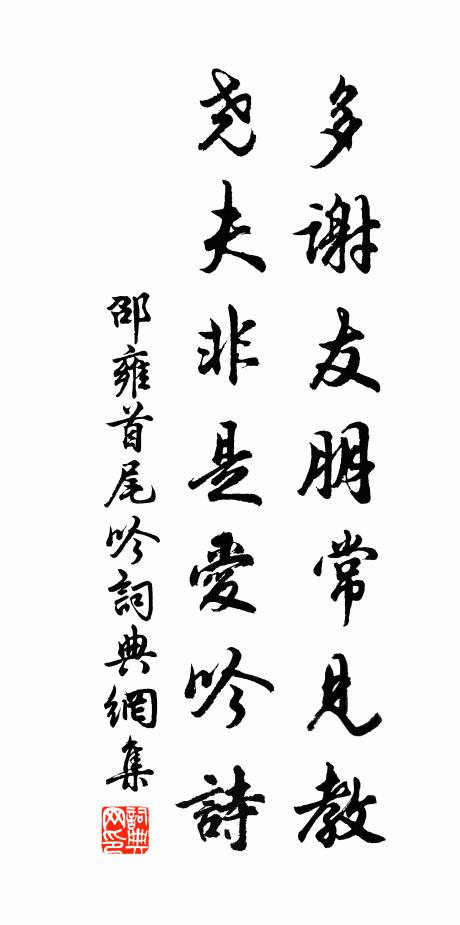 多謝友朋常見教
尧夫非是愛吟詩
邵雍首尾吟詞典網集
詞典网印